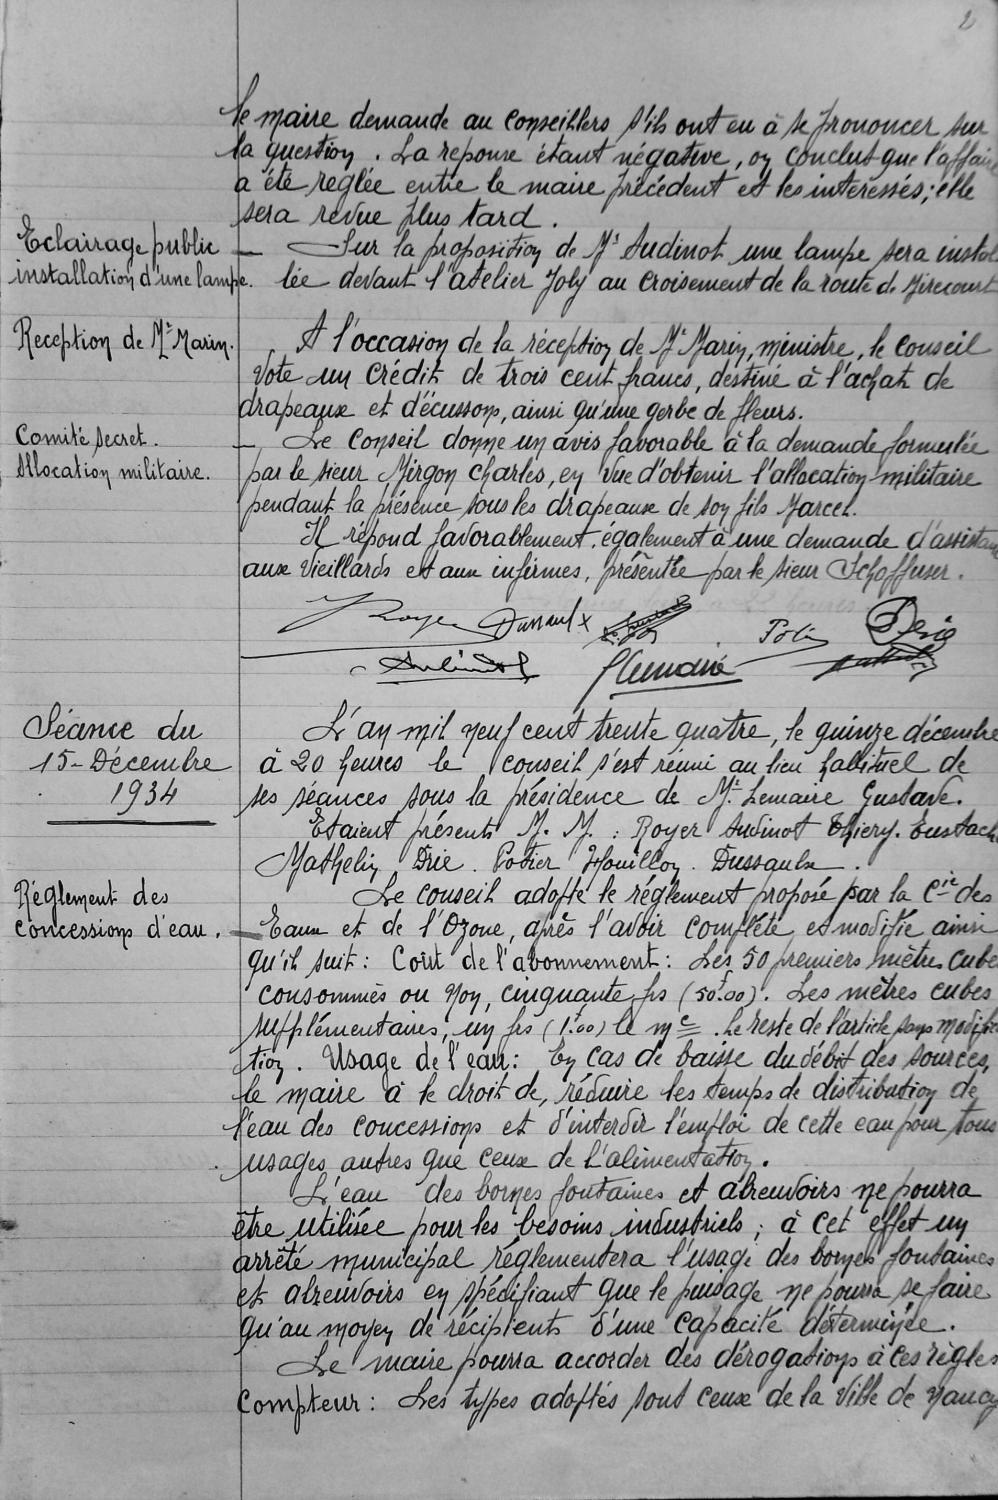 2
le maire demande au conseillers s'ils ont eu à se prononcer sur
la question. La reponse étant négative, on conclut que l'affaire
a été reglée entre le maire précédent et les interessés; elle
sera revue plus tard.
Eclairage public
installation d'une lampe.
— Sur la proposition de Mr Audinot une lampe sera instal
lée devant l'atelier Joly au croisement de la route de Mirecourt
Reception de Mr Marin.
A l'occasion de la réception de Mr Marin, ministre, le conseil
vote un crédit de trois cent francs, destiné à l'achat de
drapeaux et d'écussons, ainsi qu'une gerbe de fleurs.
Comité secret.
Allocation militaire.
— Le Conseil donne un avis favorable à la demande formulée
par le sieur Mirgon Charles, en vue d'obtenir l'allocation militaire
pendant la présence sous les drapeaux de son fils Marcel.
Il répond favorablement également à une demande d'assistance
aux vieillards et aux infirmes, présentée par le sieur Schoffuser.
Royer Dussaulx Potier Drie
Audinot GLemaire
Séance du
15 - Décembre
1934
L'an mil neuf cent trente quatre, le quinze décembre
à 20 heures le conseil s'est réuni au lieu habituel de
ses séances sous la présidence de Mr. Lemaire Gustave.
Etaient présents M. M. : Royer Audinot Thiery. Eustache
Mathelin Drie. Potier Houillon. Dussaulx.
Réglement des
concessions d'eau.
Le conseil adopte le réglement proposé par la Cie des
— Eaux et de l'Ozone, après l'avoir complété et modifié ainsi
qu'il suit : Coût de l'abonnement : Les 50 premiers mètres cubes
consommés ou non, cinquante frs (50f.00). Les mètres cubes
supplémentaires, un frs (1f.00) le mc. Le reste de l'article sans modifica
tion. Usage de l'eau : En cas de baisse du débit des sources,
le maire à le droit de, réduire les temps de distribution de
l'eau des concessions et d'interdir l'emploi de cette eau pour tous
usages autres que ceux de l'alimentation.
L'eau des bornes fontaines et abreuvoirs ne pourra
être utilisée pour les besoins industriels ; à cet effet un
arrêté municipal réglementera l'usage des bornes fontaines
et abreuvoirs en spécifiant que le puisage ne pourra se faire
qu'au moyen de récipients d'une capacité déterminée.
Le maire pourra accorder des dérogations à ces règles
Compteur : Les types adoptés sont ceux de la Ville de Nancy